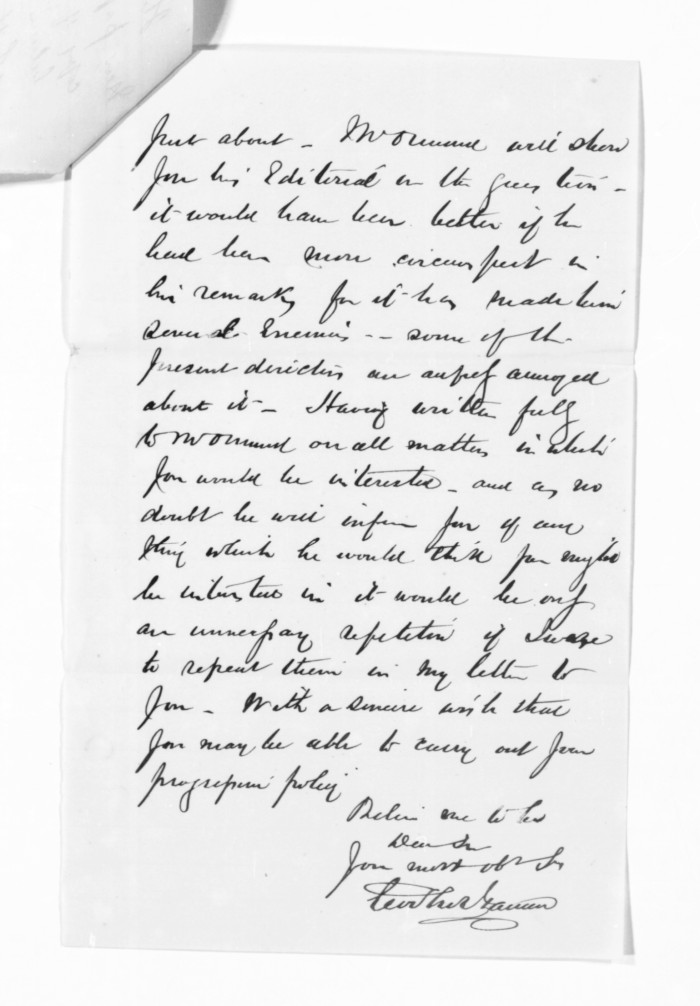 just about - McOrmond will show
you his Editorial on the question -
it would have been better if he
had been more circumspect in
his remarks for it has made him
several Enemies -- some of the
present directors are annoyed
about it - Having written fully
to McOrmond on all matters in which
you would be interested - and as no
doubt he will inform you of any
thing which he would think you might
be interested in it would be only
an unnecessary repetition if I were
to repeat them in my letter to
you - With a sincere wish that
you may be able to carry out your
progressive policy
Believe me to be
Dear Sir
your most obt St